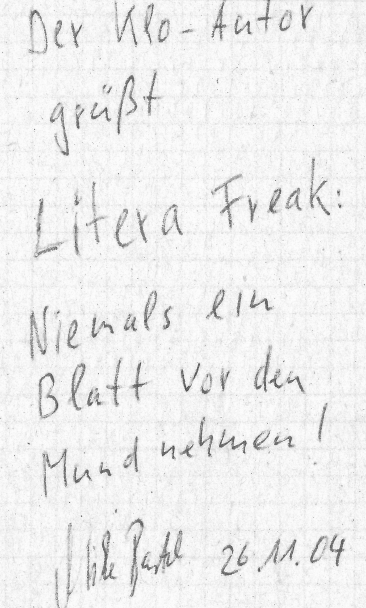 Der Klo-Autor
grüßt
Litera Freak:
Niemals ein
Blatt vor den
Mund nehmen!
26.11.04